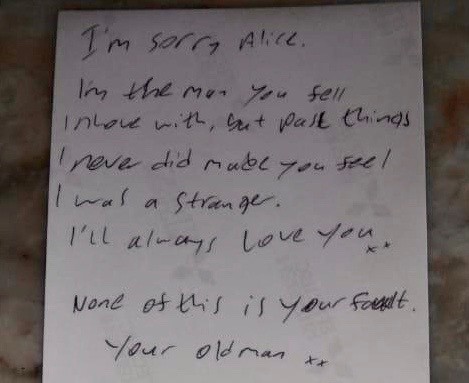 I'm sorry Alice.
I'm the man you fell
Inlove with, but past things
I never did make you feel
I was a stranger.
I'll always love you xx
None of this is your fault.
Your oldman xx